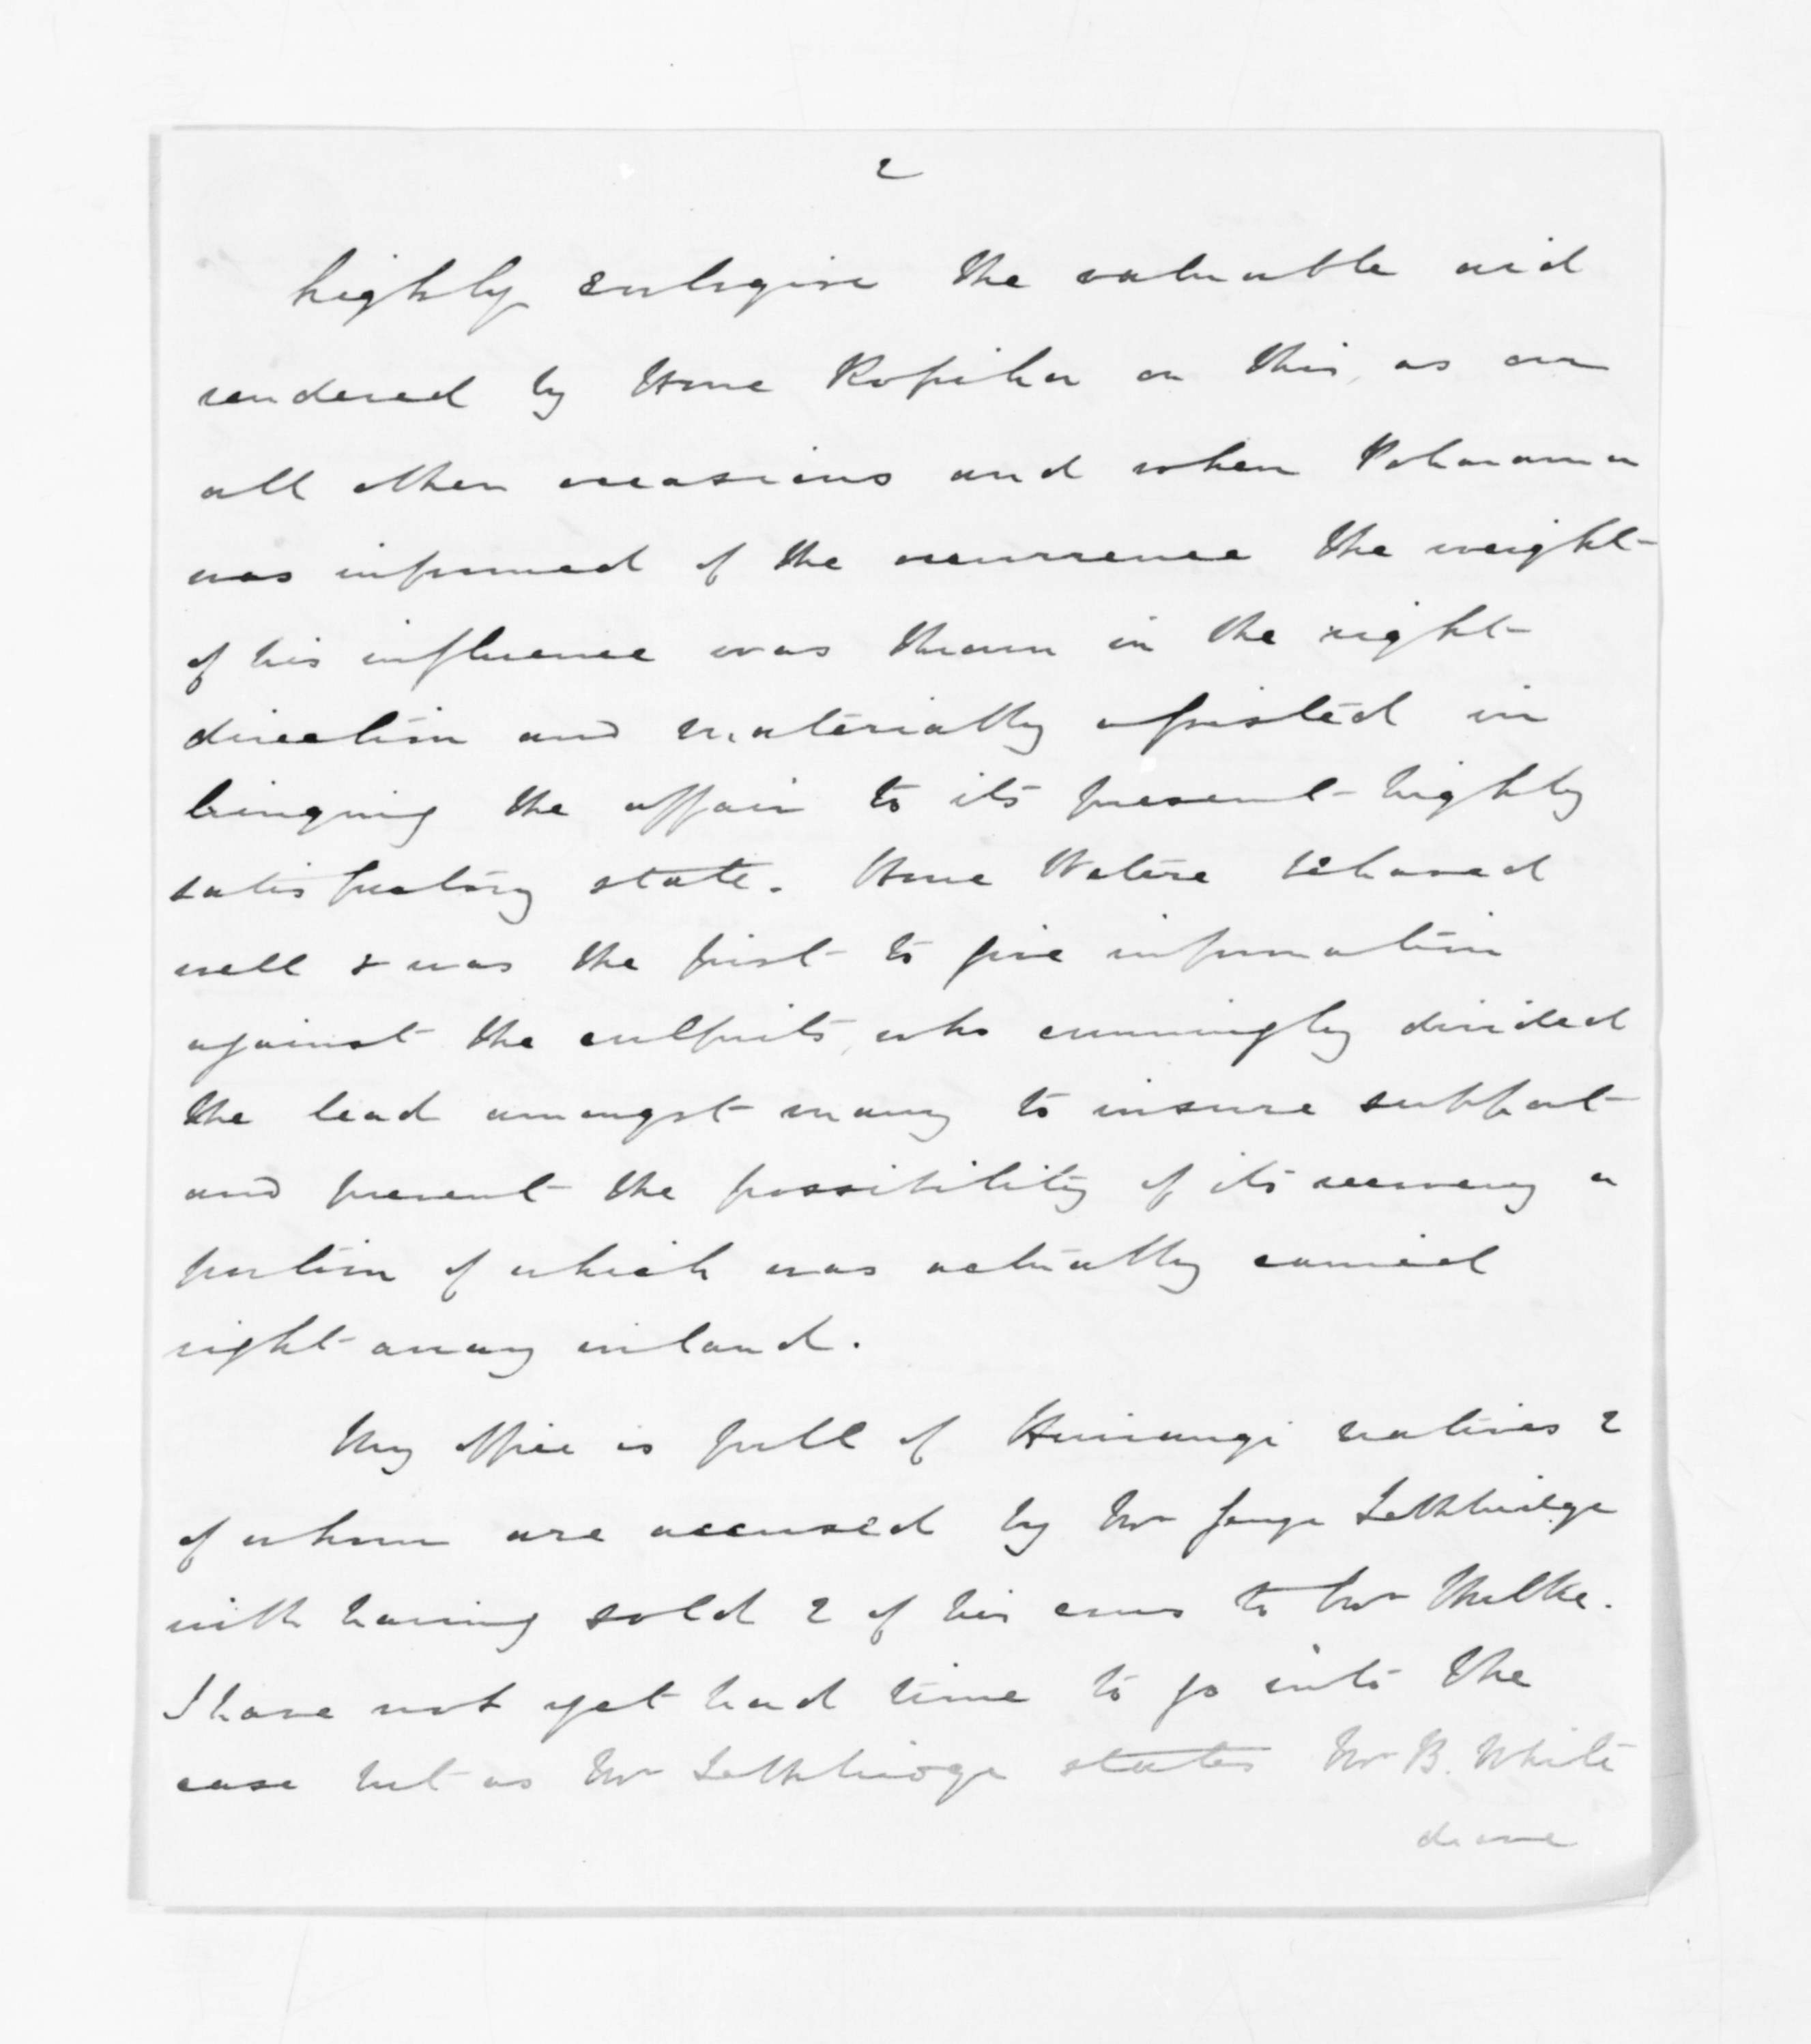 2
highly eulogise the valuable aid
rendered by Hone Ropiha on this, as on
all other occasions and when Poharama
was informed of the occurrence the weight
of his influence was thrown in the right
direction and materially assisted in
bringing the affair to its present highly
satisfactory state. Hone Watere behaved
well & was the first to give information
against the culprits, who cunningly divided
the lead amongst many to insure support
and prevent the possibility of its recovery a
portion of which was actually carried
right away inland.
My office is full of Huirangi natives 2
of whom are accused by Mr George Lethbridge
with having sold 2 of his cows to Mr
I have not yet had time to go into the
case but as Mr Lethbridge states Mr B. White
drove